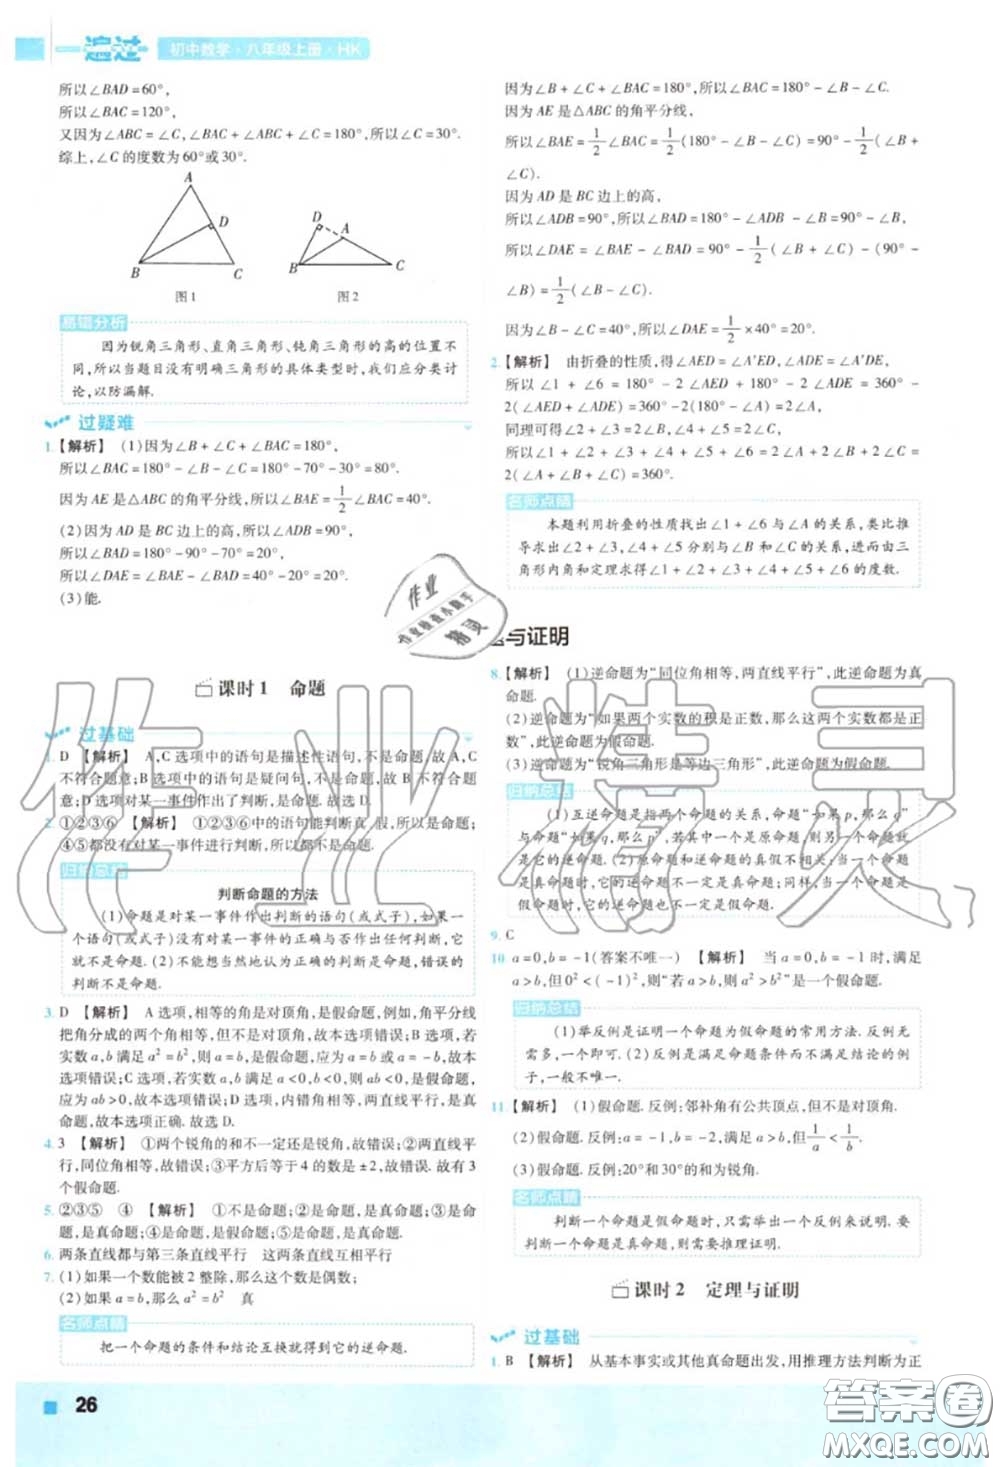 一遍过 初中数学·八年级上册·HK
所以∠BAD=60°,
所以∠BAC=120°,
又因为∠ABC=∠C,∠BAC+∠ABC+∠C=180°,所以∠C=30°.
综上,∠C的度数为60°或30°.
A
D
B
C
图1
D
A
B
C
图2
易错分析
因为锐角三角形、直角三角形、钝角三角形的高的位置不
同,所以当题目没有明确三角形的具体类型时,我们应分类讨
论,以防漏解.
过疑难
1.【解析】 (1)因为∠B+∠C+∠BAC=180°,
所以∠BAC=180°-∠B-∠C=180°-70°-30°=80°.
因为AE是△ABC的角平分线,所以∠BAE=1/2∠BAC=40°.
(2)因为AD是BC边上的高,所以∠ADB=90°,
所以∠BAD=180°-90°-70°=20°,
所以∠DAE=∠BAE-∠BAD=40°-20°=20°.
(3)能.
因为∠B+∠C+∠BAC=180°,所以∠BAC=180°-∠B-∠C.
因为AE是△ABC的角平分线,
所以∠BAE=1/2∠BAC=1/2(180°-∠B-∠C)=90°-1/2(∠B+
∠C).
因为AD是BC边上的高,
所以∠ADB=90°,所以∠BAD=180°-∠ADB-∠B=90°-∠B,
所以∠DAE=∠BAE-∠BAD=90°-1/2(∠B+∠C)-(90°-
∠B)=1/2(∠B-∠C).
因为∠B-∠C=40°,所以∠DAE=1/2×40°=20°.
2.【解析】 由折叠的性质,得∠AED=∠A'ED,∠ADE=∠A'DE,
所以∠1+∠6=180°-2∠AED+180°-2∠ADE=360°-
2(∠AED+∠ADE)=360°-2(180°-∠A)=2∠A.
同理可得∠2+∠3=2∠B,∠4+∠5=2∠C,
所以∠1+∠2+∠3+∠4+∠5+∠6=2∠A+2∠B+2∠C=
2(∠A+∠B+∠C)=360°.
名师点睛
本题利用折叠的性质找出∠1+∠6与∠A的关系,类比推
导求出∠2+∠3,∠4+∠5分别与∠B和∠C的关系,进而由三
角形内角和定理求得∠1+∠2+∠3+∠4+∠5+∠6的度数.
作业
作业检查小助手
精灵
与证明
课时1 命题
过基础
1. D 【解析】 A,C选项中的语句是描述性语句,不是命题.故A,C
不符合题意;B选项中的语句是疑问句,不是命题.故B不符合题
意;D选项对某一事件作出了判断,是命题.故选D.
2. ①②③⑥ 【解析】 ①②③⑥中的语句能判断真假,所以是命题;
④⑤都没有对某一事件进行判断,所以都不是命题.
归纳总结
判断命题的方法
(1)命题是对某一事件作出判断的语句(或式子),如果一
个语句(或式子)没有对某一事件的正确与否作出任何判断,它
就不是命题.(2)不能想当然地认为正确的是命题,错误的
判断不是命题.
3. D 【解析】 A选项,相等的角是对顶角,是假命题,例如,角平分线
把角分成的两个角相等,但不是对顶角,故本选项错误;B选项,若
实数a,b满足a²=b²,则a=b,是假命题,应为a=b或a=-b,故本
选项错误;C选项,若实数a,b满足a<0,b<0,则ab<0,是假命题,
应为ab>0,故本选项错误;D选项,内错角相等,两直线平行,是真
命题,故本选项正确.故选D.
4. 3 【解析】 ①两个锐角的和不一定还是锐角,故错误;②两直线平
行,同位角相等,故错误;③平方后等于4的数是±2,故错误.故有3
个假命题.
5. ②③⑤ ④ 【解析】 ①不是命题;②是命题,是真命题;③是命
题,是真命题;④是命题,是假命题;⑤是命题,是真命题.
6. 两条直线都与第三条直线平行 这两条直线互相平行
7. (1)如果一个数能被2整除,那么这个数是偶数;
(2)如果a=b,那么a²=b² 真
名师点睛
把一个命题的条件和结论互换就得到它的逆命题.
8.【解析】 (1)逆命题为“同位角相等,两直线平行”,此逆命题为真
命题.
(2)逆命题为“如果两个实数的积是正数,那么这两个实数都是正
数”,此逆命题为假命题.
(3)逆命题为“锐角三角形是等边三角形”,此逆命题为假命题.
归纳总结
(1)互逆命题是指两个命题的关系,命题“如果p,那么q”
与命题“如果q,那么p”,若其中一个是原命题,则另一个命题就
是它的逆命题.(2)原命题和逆命题的真假不相关;当一个命题
是真命题时,它的逆命题不一定是真命题;同样,当一个命题是
假命题时,它的逆命题也不一定是假命题.
9. C
10. a=0,b=-1(答案不唯一) 【解析】 当a=0,b=-1时,满足
a>b,但0²<(-1)²,则“若a>b,则a²>b²”是一个假命题.
归纳总结
(1)举反例是证明一个命题为假命题的常用方法.反例无
需多,一个即可.(2)反例是满足命题条件而不满足结论的例
子,一般不唯一.
11.【解析】 (1)假命题.反例:邻补角有公共顶点,但不是对顶角.
(2)假命题.反例:a=-1,b=-2,满足a>b,但1/a<1/b.
(3)假命题.反例:20°和30°的和为锐角.
名师点睛
判断一个命题是假命题时,只需举出一个反例来说明.要
判断一个命题是真命题时,需要推理证明.
课时2 定理与证明
过基础
1. B 【解析】 从基本事实或其他真命题出发,用推理方法判断为正
26
作业精灵
答案圈
MXQE.COM